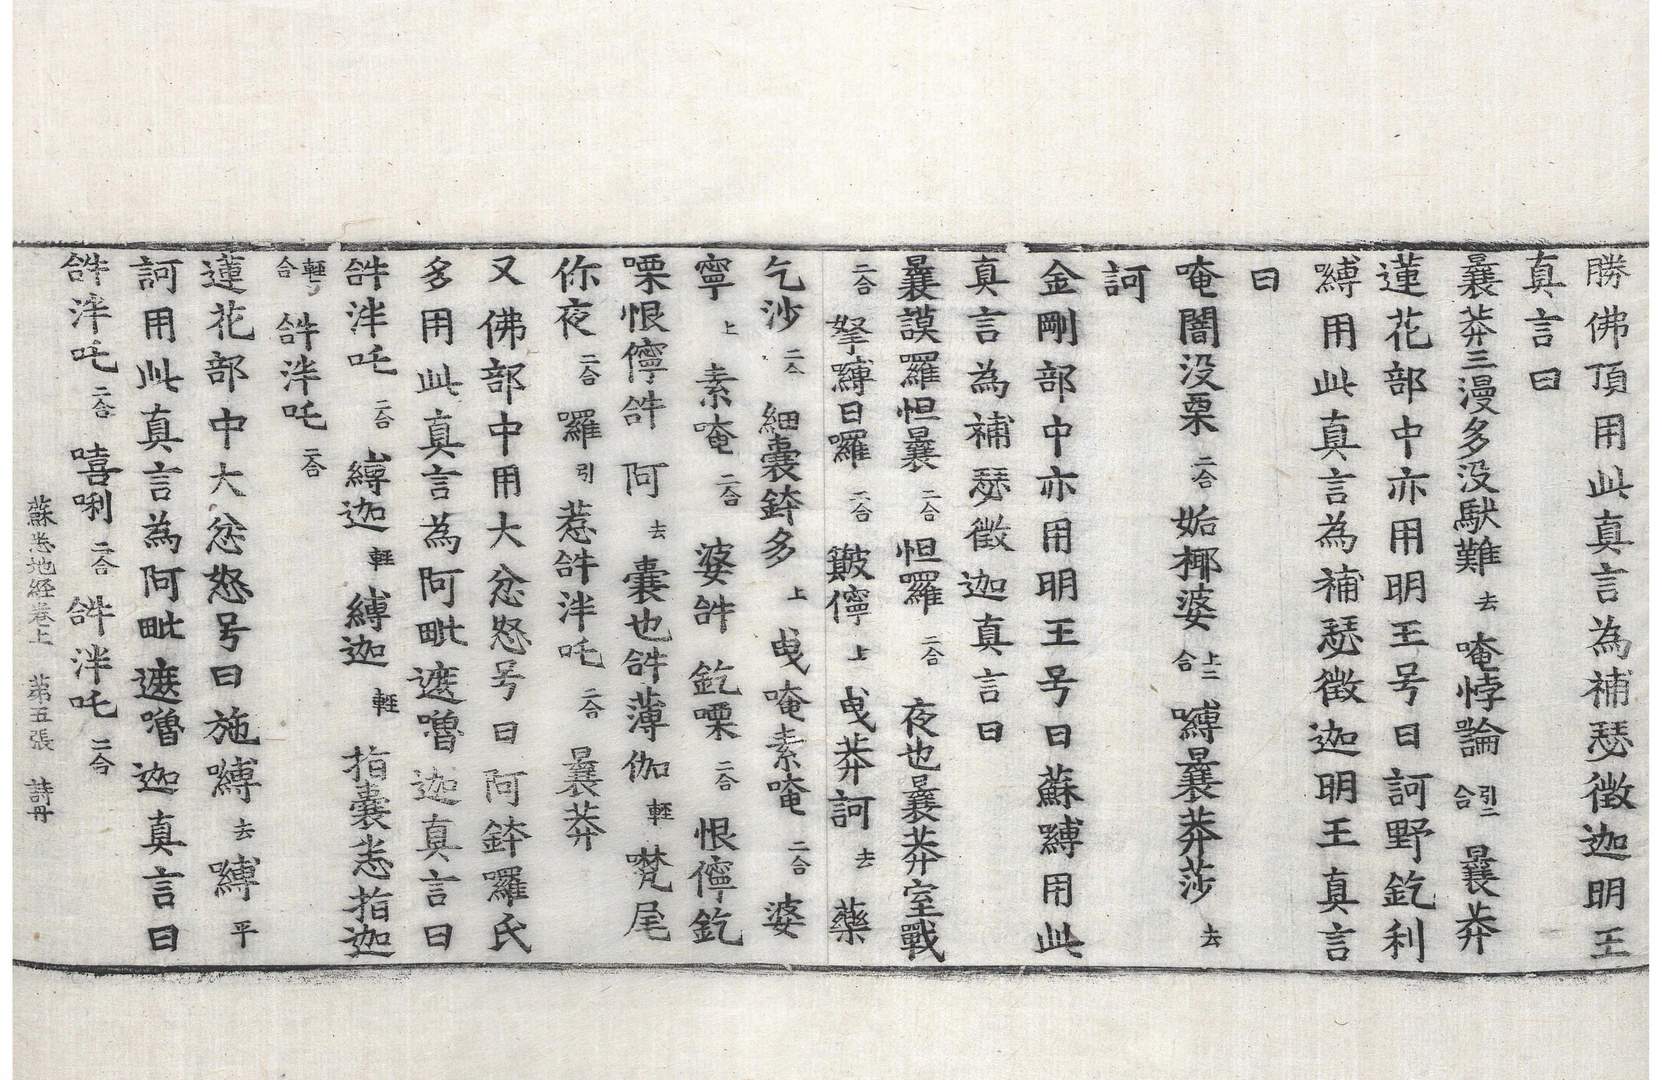 勝佛頂用此真言為補瑟徵迦明王
真言曰
曩莽三漫多没馱難去唵悖嚕引二合曩莽
蓮花部中亦用明王号曰訶野釳利
嚩用此真言為補瑟徵迦明王真言
曰
唵闇没栗二合姤椰婆上二合嚩曩莽莎去
訶
金剛部中亦用明王号曰蘇嚩用此
真言為補瑟徵迦真言曰
曩謨羅怛曩二合怛羅二合夜也曩莽室戰
二合拏嚩日囉二合簸儜上曳莽訶去藥
乞沙二合細囊鉢多上曳唵素唵二合婆
寧上素唵二合婆𤙖釳㗚二合恨儜釳
㗚恨儜𤙖阿去囊也𤙖薄伽輕㘕尾
你夜二合囉引惹𤙖泮吒二合曩莽
又佛部中用大忿怒号曰阿鉢羅氏
多用此真言為阿毗遮嚕迦真言曰
𤙖泮吒二合嚩迦輕嚩迦輕指囊悉指迦
輕呼合𤙖泮吒二合
蓮花部中大忿怒号曰施嚩去嚩平
訶用此真言為阿毗遮嚕迦真言曰
𤙖泮吒二合嘻唎二合𤙖泮吒二合
蘇悉地経卷上　第五張　詩丹